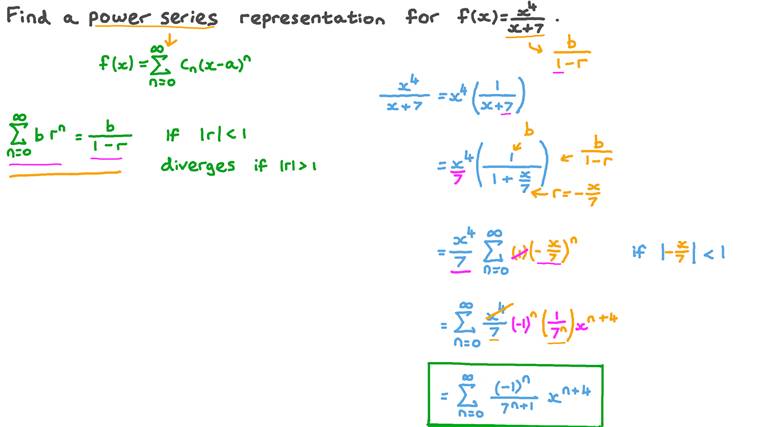 Find a power series representation for f(x)=x⁴/(x+7).
b/(1-r)
f(x)=∑_{n=0}^{∞} cₙ(x-a)ⁿ
∑_{n=0}^{∞} b rⁿ = b/(1-r) If |r|<1
diverges if |r|>1
x⁴/(x+7) = x⁴(1/(x+7))
b
= x⁴/7 (1/(1+x/7)) ← b/(1-r)
← r=-x/7
= x⁴/7 ∑_{n=0}^{∞} (1)(-x/7)ⁿ if |-x/7|<1
= ∑_{n=0}^{∞} x⁴/7 (-1)ⁿ (1/7ⁿ) xⁿ⁺⁴
= ∑_{n=0}^{∞} (-1)ⁿ/7ⁿ⁺¹ xⁿ⁺⁴